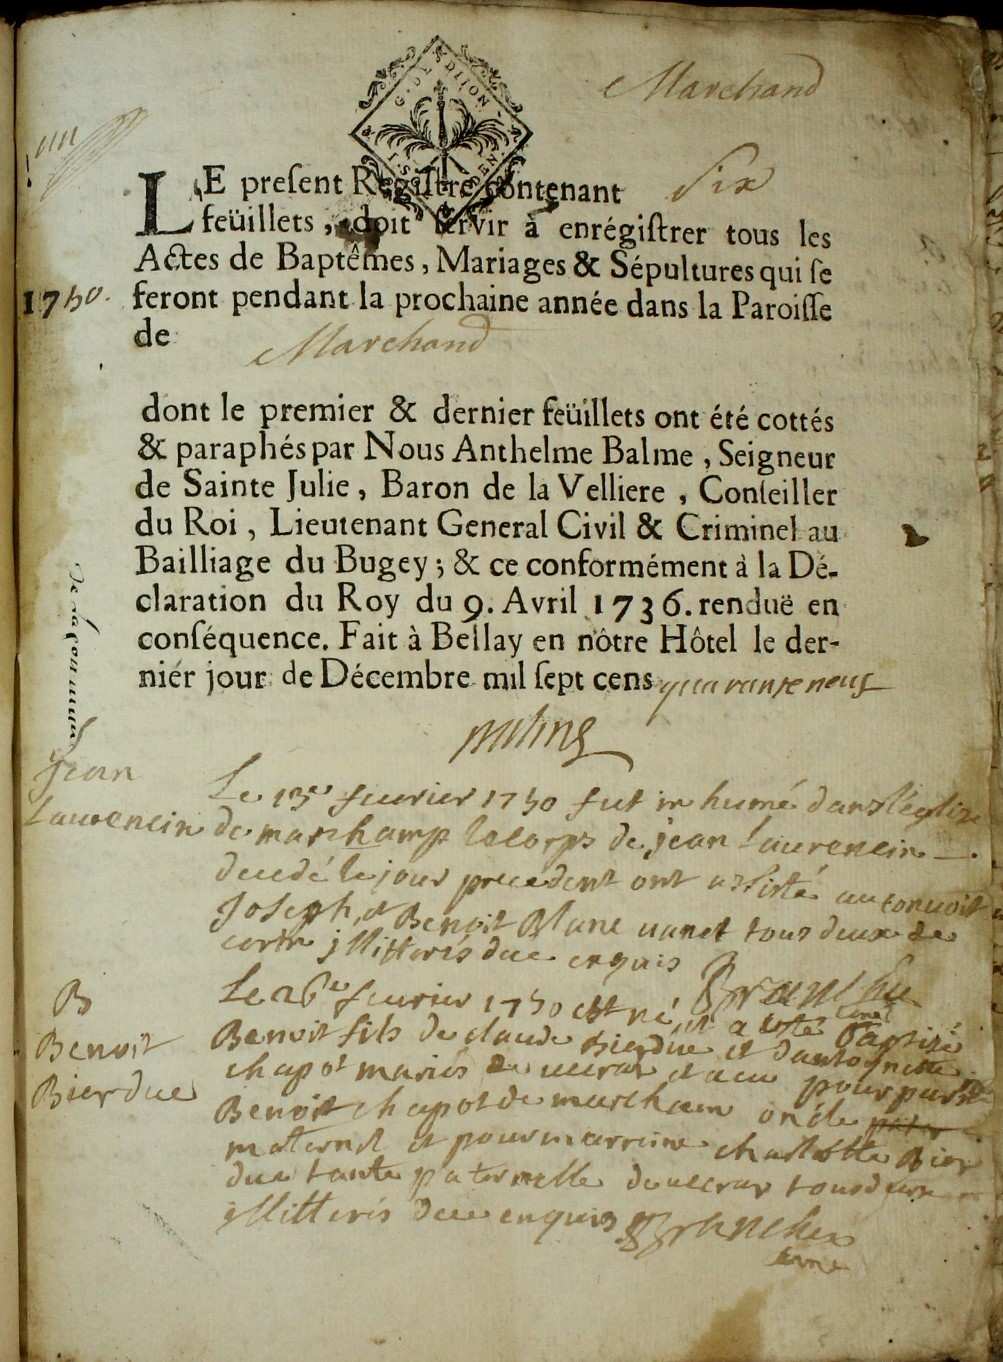 Marchand
G. DE DIJON
LE preſent Regiſtre contenant Six
feüillets, doit ſervir à enrégiſtrer tous les
Actes de Baptêmes, Mariages & Sépultures qui ſe
1750.
feront pendant la prochaine année dans la Paroiſſe
de Marchand
dont le premier & dernier feüillets ont été cottés
& paraphés par Nous Anthelme Balme, Seigneur
de Sainte Julie, Baron de la Velliere, Conſeiller
du Roi, Lieutenant General Civil & Criminel au
Bailliage du Bugey; & ce conformément à la Dé-
claration du Roy du 9. Avril 1736. renduë en
conſéquence. Fait à Bellay en nôtre Hôtel le der-
niér jour de Décembre mil ſept cens quarante neuf
Jean
Laurencin
Le 13e feuvrier 1750 fut in humé dans léglize
de marchamp le corps de jean Laurencin
decedé le jour precedent ont assisté au convoit
Joseph, et Benoit Blanc tous deux de
illitterés de ce enquis
Branche
B
Benoit
Bierdue
Le 26e feuvrier 1750 est né et a este Baptizé
Benoit fils de claude Bierdue et dantoynette
chapot mariés de et a eu pour parain
Benoit chapot de marcham oncle
maternel et pour marreine charlotte Bier
due tante paternelle de tous deux
illitterés de ce enquis Branche
curé